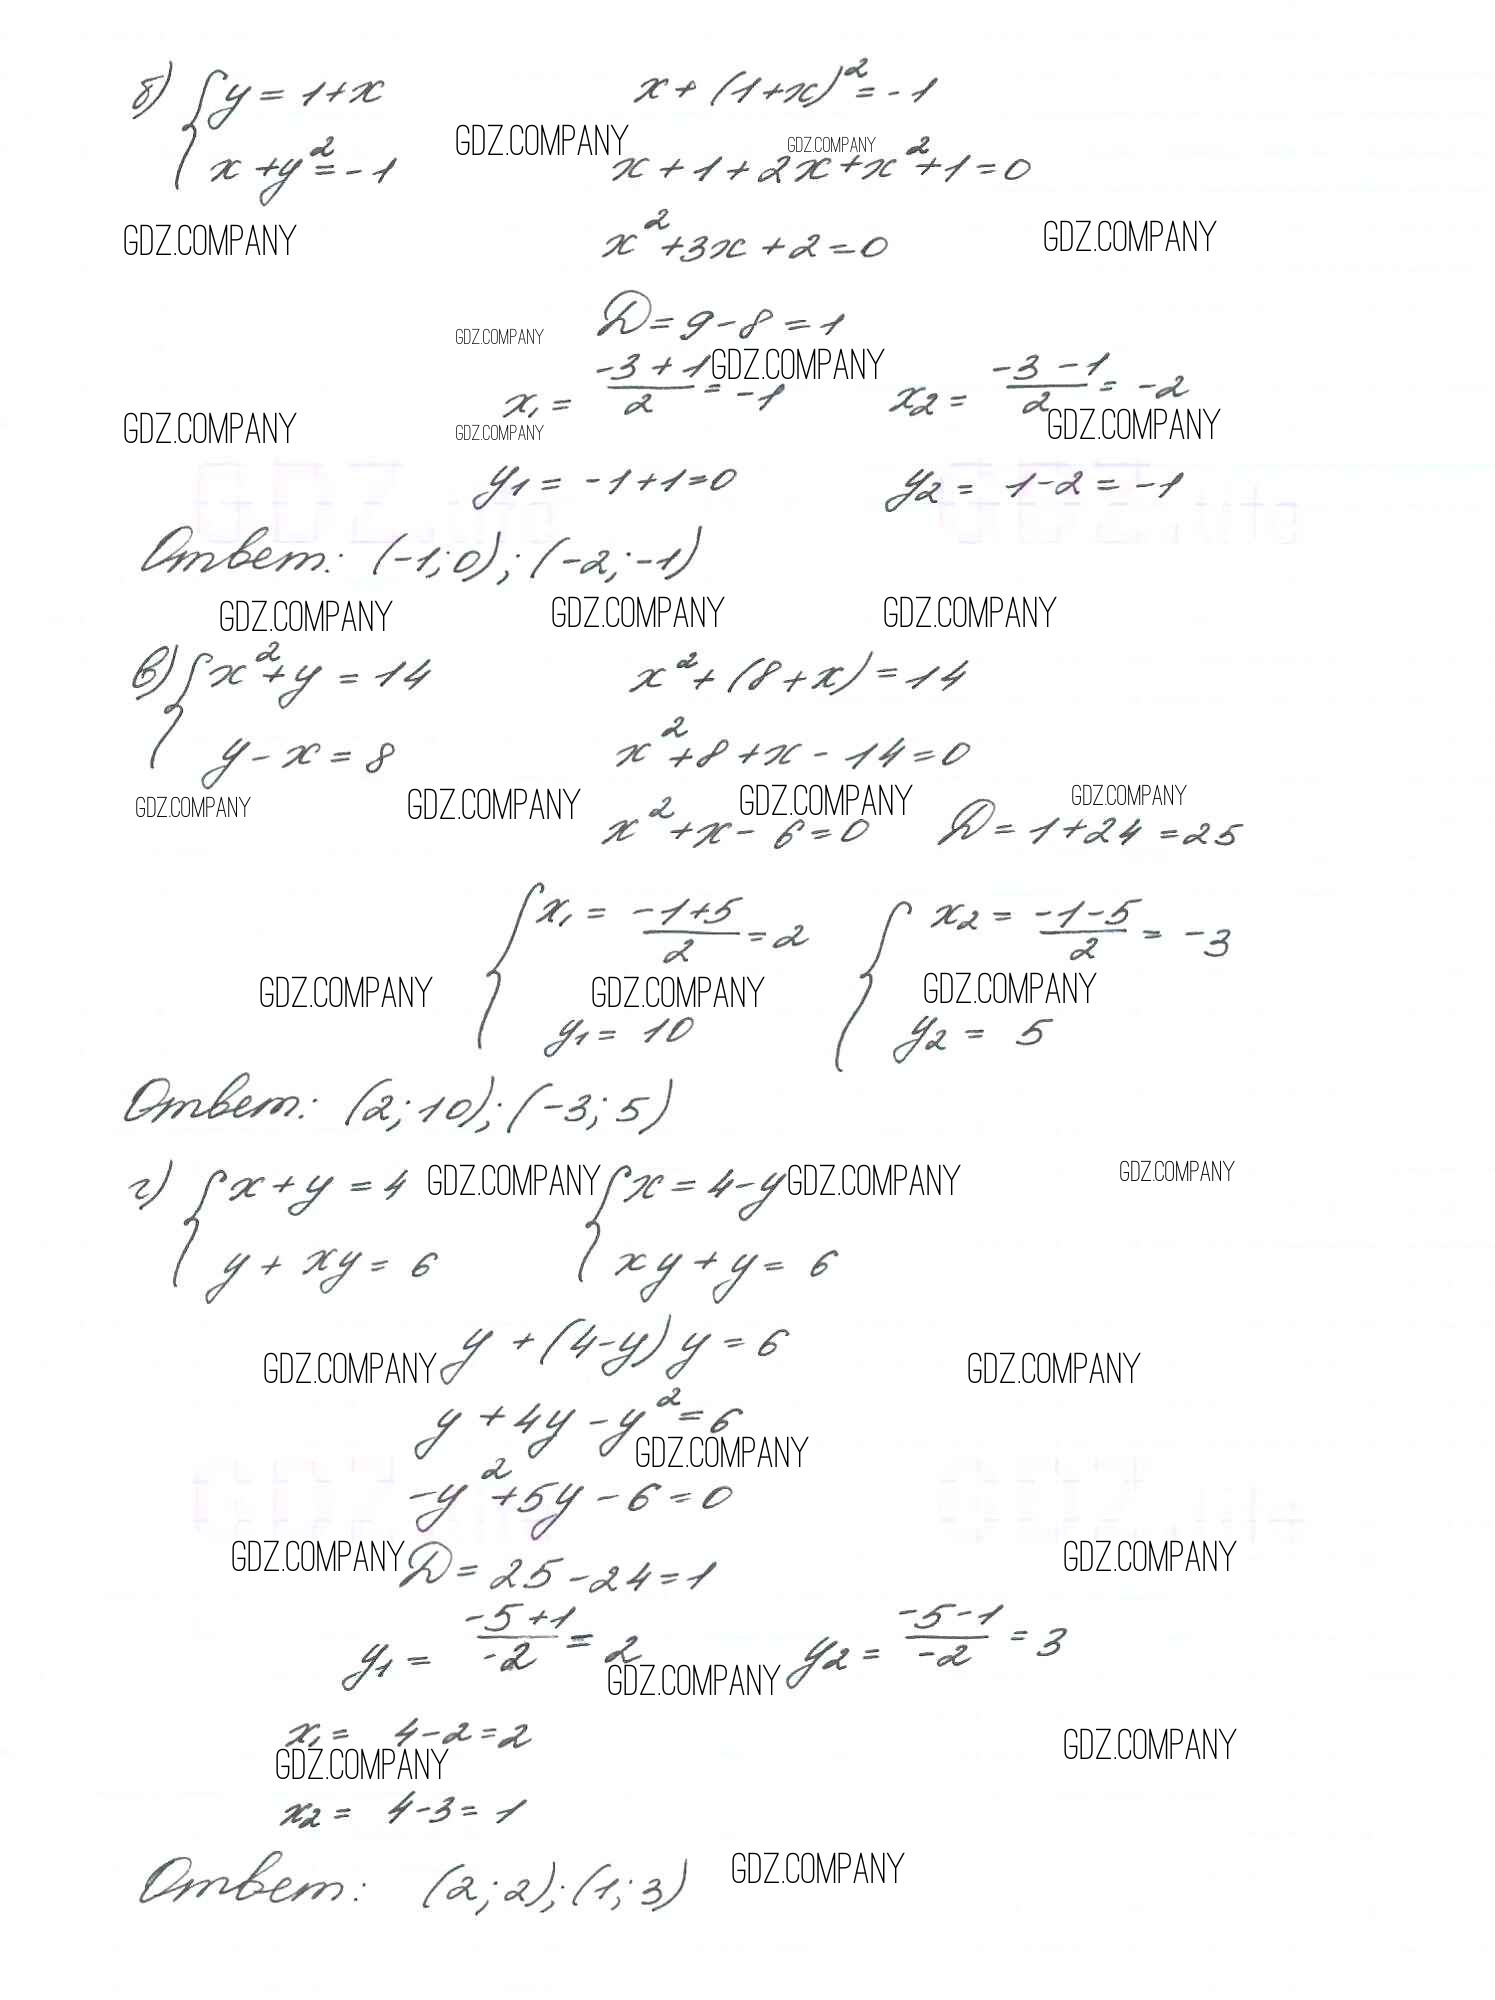 б) { y = 1+x    x + (1+x)² = -1
GDZ.COMPANY GDZ.COMPANY
x + y² = -1    x + 1 + 2x + x² + 1 = 0
GDZ.COMPANY x² + 3x + 2 = 0 GDZ.COMPANY
GDZ.COMPANY D = 9 - 8 = 1
GDZ.COMPANY
x₁ = (-3+1)/2 = -1    x₂ = (-3-1)/2 = -2
GDZ.COMPANY GDZ.COMPANY GDZ.COMPANY
y₁ = -1+1=0    y₂ = 1-2 = -1
Ответ: (-1; 0); (-2; -1)
GDZ.COMPANY GDZ.COMPANY GDZ.COMPANY
в) { x² + y = 14    x² + (8+x) = 14
y - x = 8    x² + 8 + x - 14 = 0
GDZ.COMPANY GDZ.COMPANY GDZ.COMPANY GDZ.COMPANY
x² + x - 6 = 0    D = 1+24 = 25
{ x₁ = (-1+5)/2 = 2    { x₂ = (-1-5)/2 = -3
GDZ.COMPANY GDZ.COMPANY GDZ.COMPANY
y₁ = 10    y₂ = 5
Ответ: (2; 10); (-3; 5)
г) { x + y = 4 GDZ.COMPANY { x = 4-y GDZ.COMPANY GDZ.COMPANY
y + xy = 6    xy + y = 6
GDZ.COMPANY y + (4-y) y = 6 GDZ.COMPANY
y + 4y - y² = 6
GDZ.COMPANY
-y² + 5y - 6 = 0
GDZ.COMPANY D = 25 - 24 = 1 GDZ.COMPANY
y₁ = (-5+1)/-2 = 2    y₂ = (-5-1)/-2 = 3
GDZ.COMPANY
x₁ = 4-2 = 2 GDZ.COMPANY
GDZ.COMPANY
x₂ = 4-3 = 1
Ответ: (2; 2); (1; 3) GDZ.COMPANY